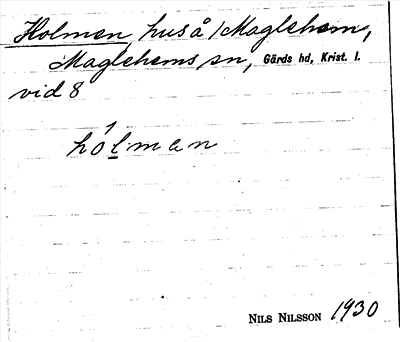 Holmen, hus å Maglehem,
Maglehems sn, Gärds hd, Krist. l.
vid 8
hólman
NILS NILSSON 1930